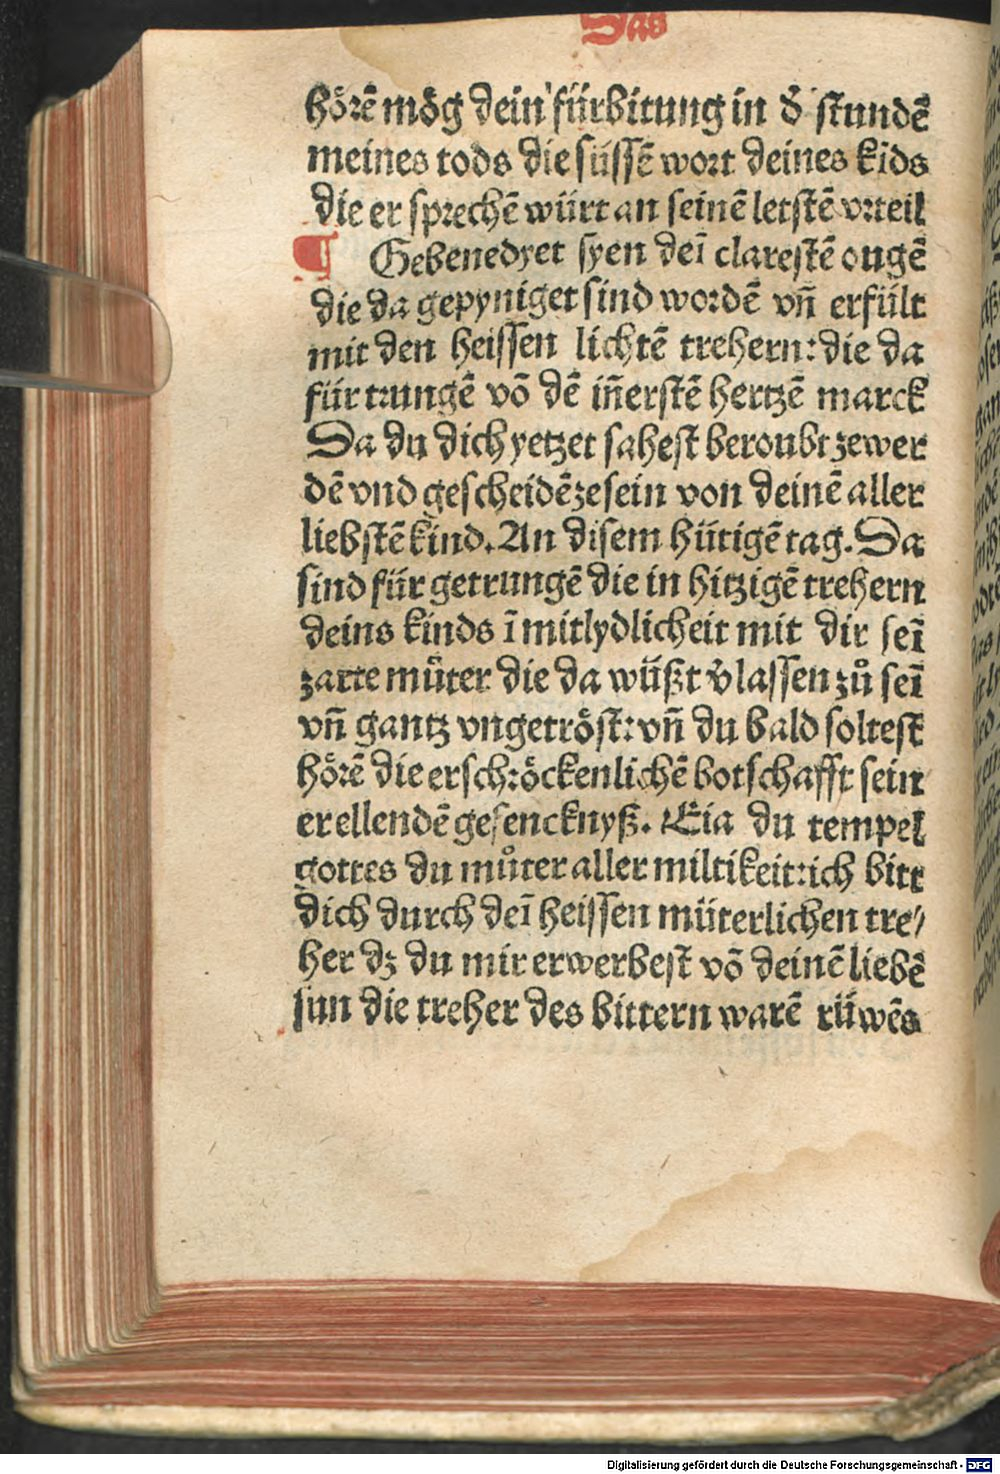 Das
hörē mög dein fürbitung in d̄ stundē
meines tods die süssē wort deines kīds
die er sprechē würt an seinē letstē vrteil
¶ Gebenedyet syen deī clarestē ougē
die da gepyniget sind wordē vn̄ erfült
mit den heissen lichtē trehern: die da
für trungē vō dē in̄erstē hertzē marck
Da du dich yetzet sahest beroubt zewer
dē vnd gescheidē zesein von deinē aller
liebstē kind. An disem hütigē tag. Da
sind für getrungē die in hitzigē trehern
deins kinds ī mitlydlicheit mit dir seī
zarte můter die da wüßt v̄lassen zů seī
vn̄ gantz vngetröst: vn̄ du bald soltest
hörē die erschröckenlichē botschafft sein
er ellendē gefencknyß. Eia du tempel
gottes du můter aller miltikeit: ich bitt
dich durch deī heissen müterlichen tre/
her dz du mir erwerbest vō deinē liebē
sun die treher des bittern warē rüwēs
Digitalisierung gefördert durch die Deutsche Forschungsgemeinschaft - DFG